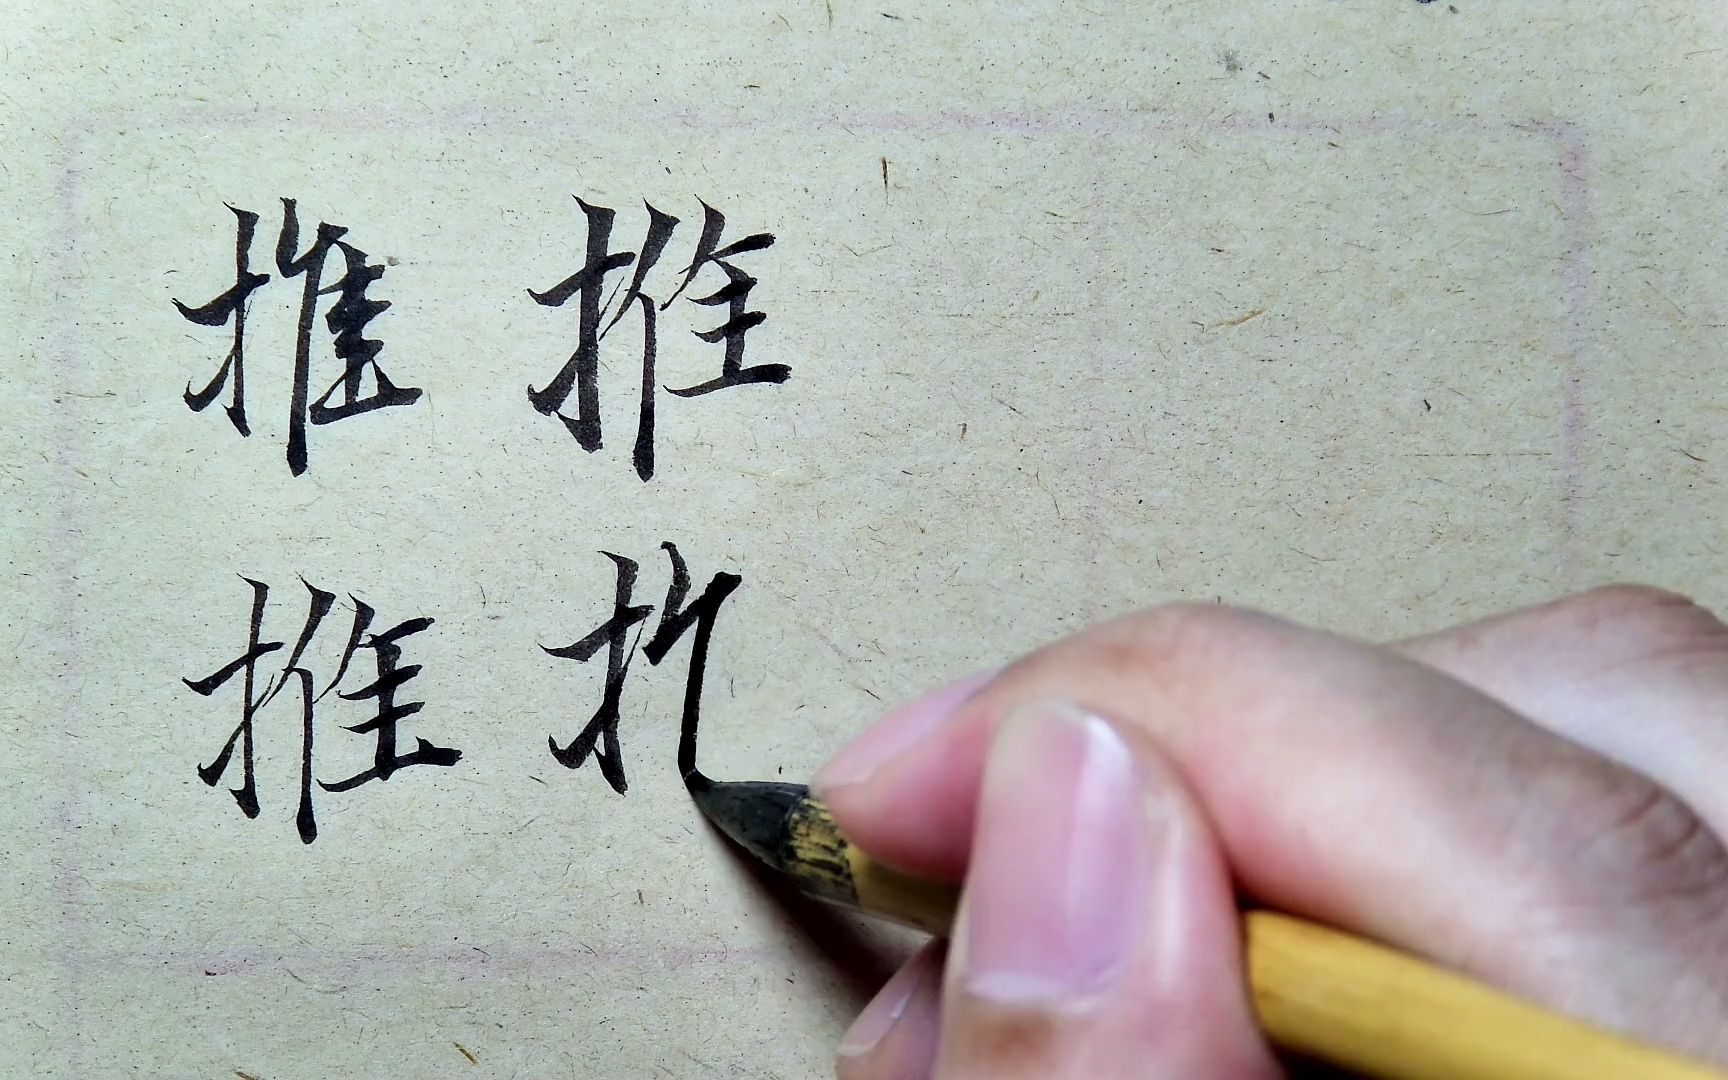 推 推
推